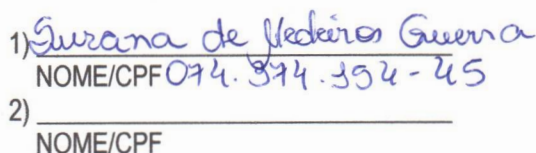 1) Suzana de Medeiros Guerra
NOME/CPF 074.374.154-45
2)
NOME/CPF